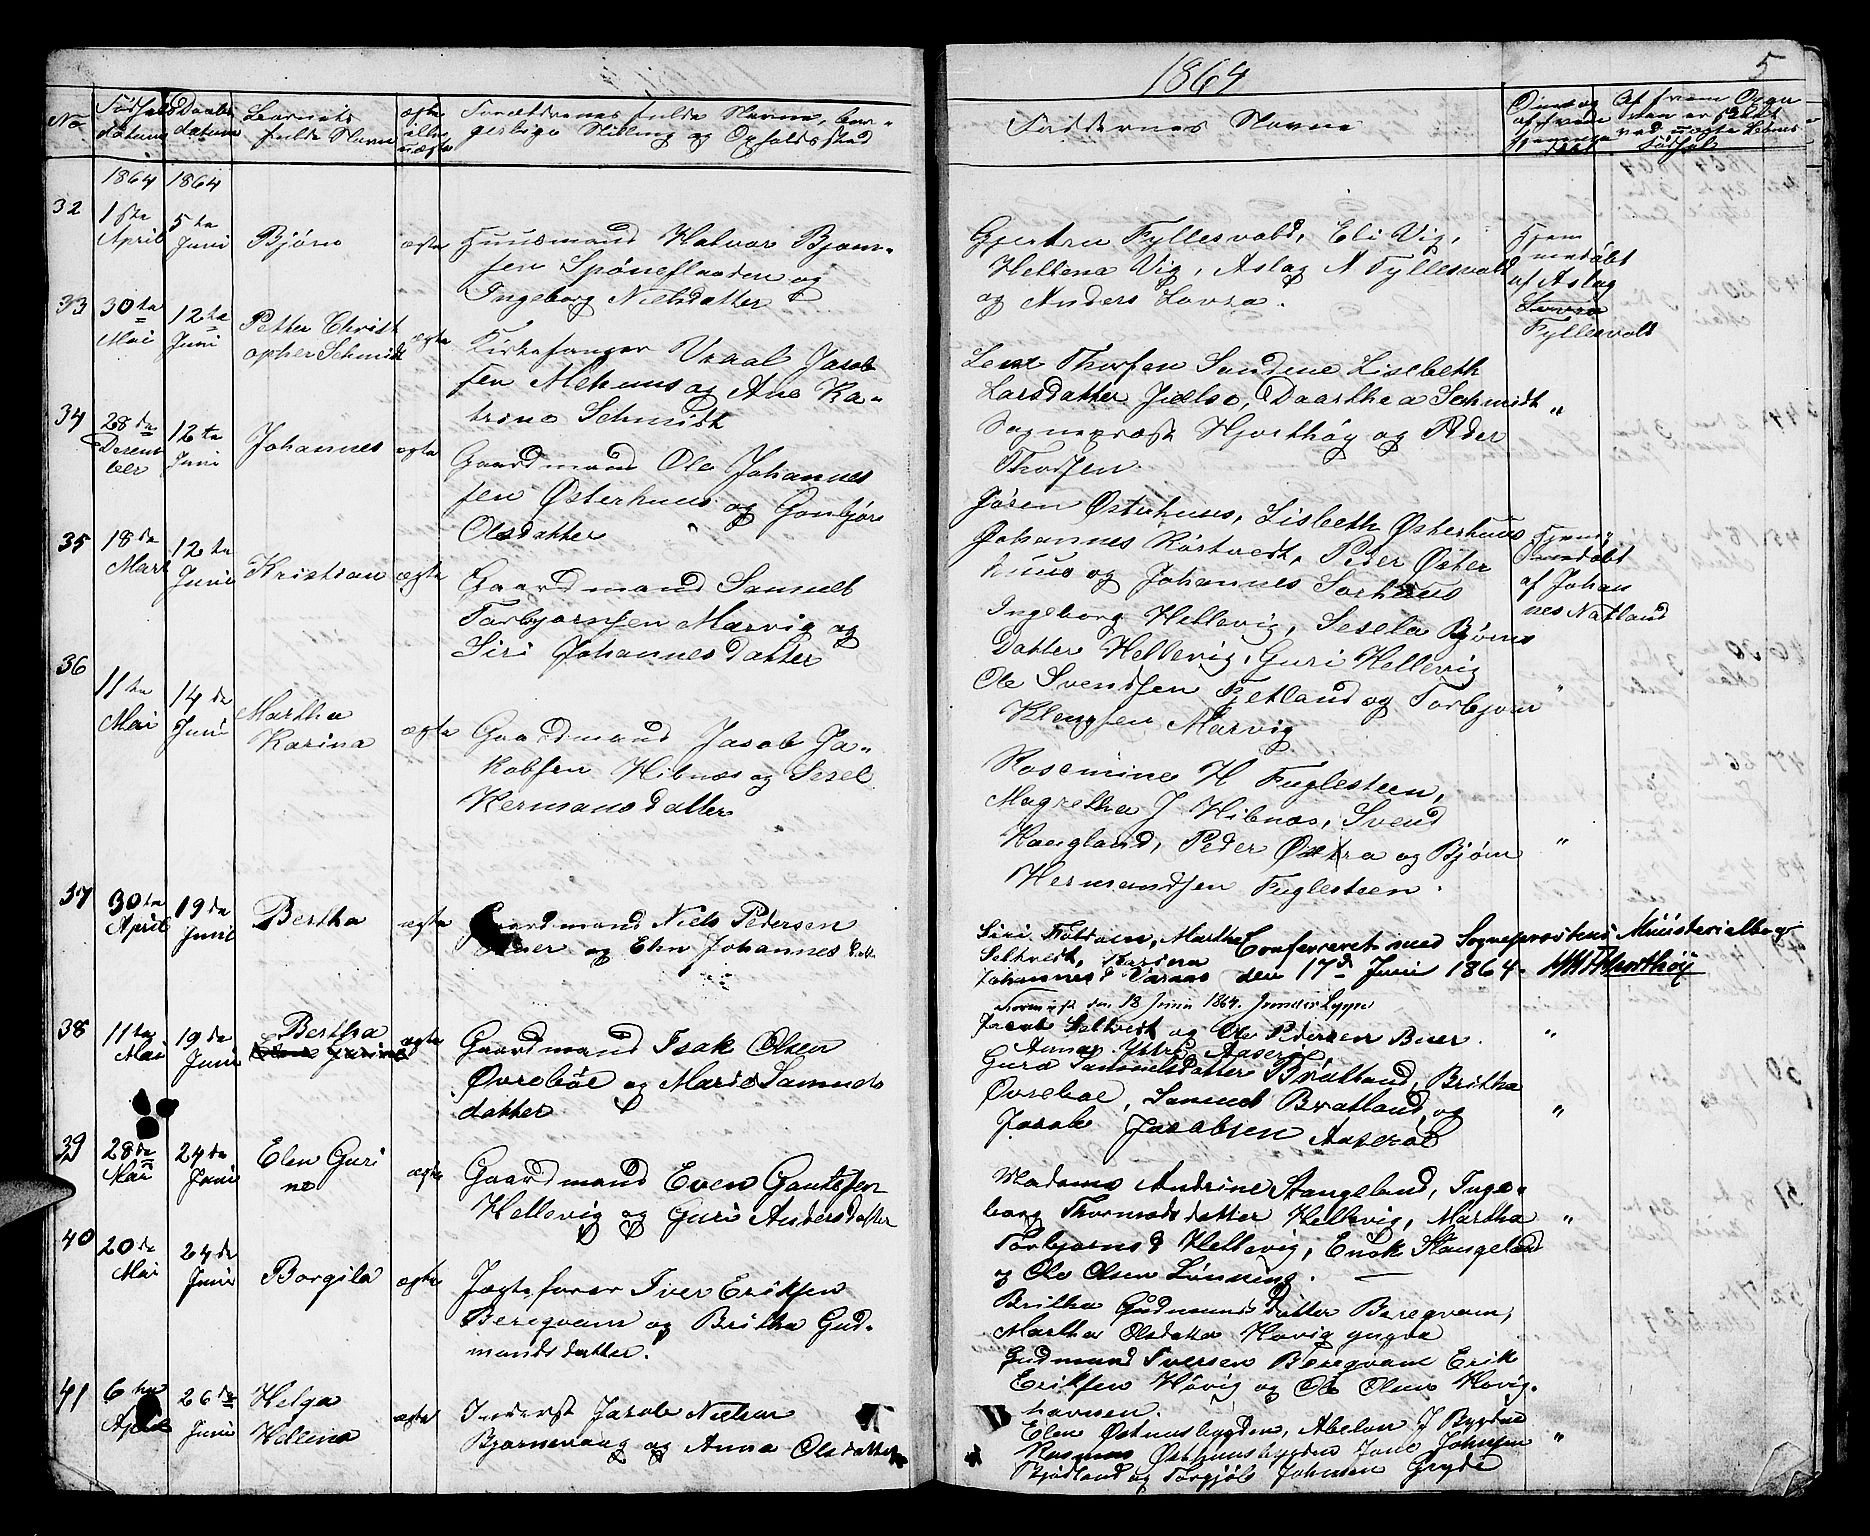 1864
5
No
Fødsels datum
Daabs datum
Barnets fulde Navn
ægte eller uægte
Forældrenes fulde Navne, bor-
gerlige Stilling og Opholdssted
Faddernes Navne
1864 1864
32
1ste April
5te Juni
Bjørn
ægte
Huusmand Halvor Bjørn-
sen Spøneflaaden og
Ingeborg Nielsdatter
Gjertru Fyllesvold, Eli Vig,
Hellena Vig, Aslag A Fyllesvold
og Anders Lovra.
Hjem
medøbt
af Aslag
Lovra
Fyllesvold
33
30te Mai
12te Juni
Petter Christ
opher Schmidt
ægte
Kirkesanger Vraal Jacob
sen Mehuus og Ane Ka-
trine Schmidt
Lene Thorsen Sundine Lisebeth
Larsdatter Jælse, Daarthea Schmidt
Sognepræst Hjorthøy og Peder
Thorsen.
"
34
28de Decem
ber
12te Juni
Johannes
ægte
Gaardmand Ole Johannes
sen Østerhuus og Gonbjør
Olsdatter
Jøren Østerhuus, Lisbeth Østerhuus
Johannes Rørtvedt, Peder Øster
huus og Johannes Sørhuus
Hjem-
medøbt
af Johan
nes Natland
35
18de Mart
12te Juni
Kristian
ægte
Gaardmand Samuel
Torbjørnsen Marvig og
Siri Johannesdatter
Ingeborg Hellevig, Sesela Bjørns
Datter Hellevig, Guri Hellevig
Ole Svendsen Fetland og Torbjørn
Klengsen Marvig
"
36
11te Mai
14de Juni
Martha
Karina
ægte
Gaardmand Jacob Ja-
kobsen Hibnæs og Sesel
Hermansdatter
Rosemine H Fuglesteen,
Magretha J Hibnæs, Svend
Haugland, Peder Østra og Bjørn
Hermandsen Fuglesteen.
"
37
30te April
19de Juni
Bertha
ægte
Gaardmand Niels Pedersen
og Elen Johannesdatter
Siri Foldøen, Martha
Seltvedt,
Johannes
Confereret med Sognepræstens Ministerialbog
den 17de Juni 1864. Hjorthøy
den 18 Juni 1864.
Jacob Seltvedt og Ole Pedersen Buer.
"
38
11te Mai
19de Juni
Bertha
ægte
Gaardmand Isak Olsen
Øvrebøe og Marie Samuels
datter
Anna Yttre Aaserø
Guro Samuelsdatter Bratland, Britha
Øvreboe, Samuel Bratland og
Jacob Jacobsen Aaserøe
"
39
28de Mai
24de Juni
Elen Guri
ne
ægte
Gaardmand Even Gautesen
Hellevig og Guri Andersdatter
Madame Andrine Stangeland, Inge-
borg Thormodsdatter Hellevig, Martha
Torbjørnsd Hellevig, Enok Stangeland
og Ole Olsen Lønning.
"
40
20de Mai
24de Juni
Borgila
ægte
Jægtefører Iver Eriksen
Beregvam og Britha Gud-
mandsdatter.
Britha Gudmunsdatter Beregvam,
Martha Olsdatter Høvig yngre
Gudmund Iversen Beregvam Erik
Eriksen Høvig og Ole Olsen Høvig-
havnen.
41
6te April
26de Juni
Helga
Hellena
ægte
Inderst Jacob Nielsen
Bjørnevaag og Anna Olsdatter
Elen Østhuusbygden, Abelon J Bygden
Rasmus Østhuusbygden Jone Johnsen
Fjødland og Torgjøls Johnsen Gryde
"